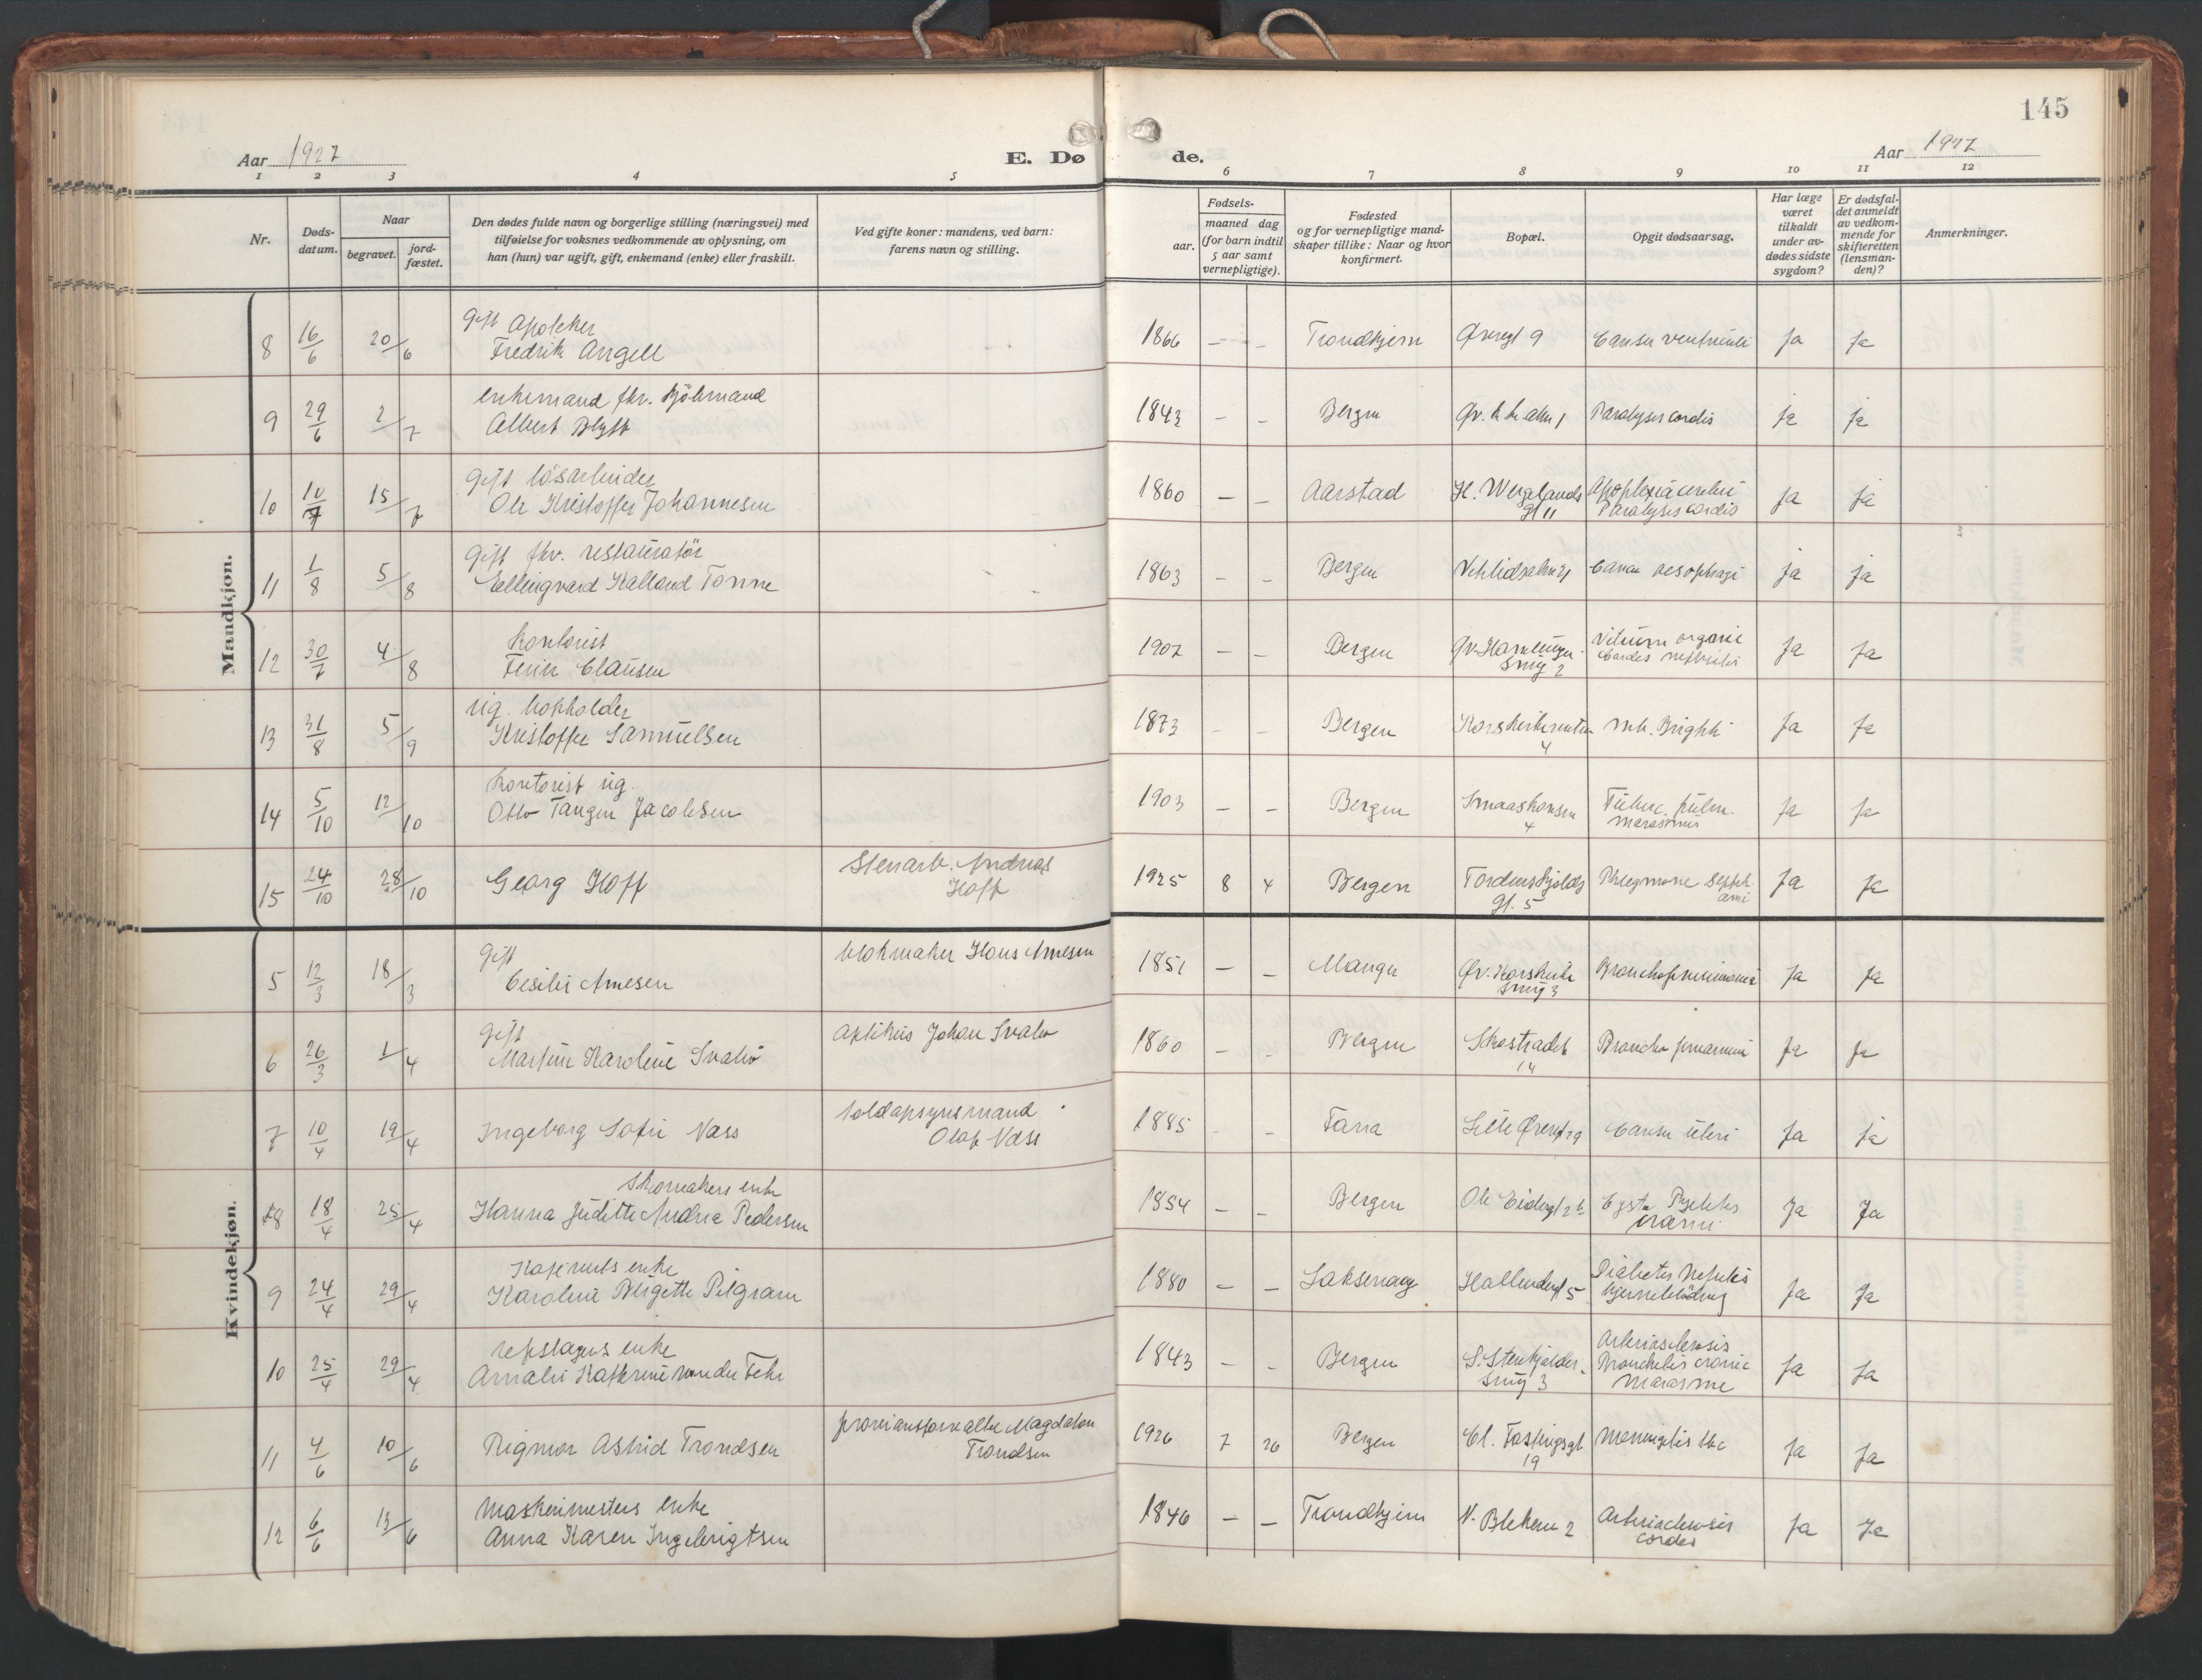 145
Aar 1927
E. Dø
de.
Aar 1927
1 2 3 4 5 6 7 8 9 10 11 12
Nr.
Døds-
datum.
Naar
begravet.
jord-
fæstet.
Den dødes fulde navn og borgerlige stilling (næringsvei) med
tilføielse for voksnes vedkommende av oplysning, om
han (hun) var ugift, gift, enkemand (enke) eller fraskilt.
Ved gifte koner: mandens, ved barn:
farens navn og stilling.
Fødsels-
aar.
maaned dag
(for barn indtil
5 aar samt
vernepligtige).
Fødested
og for vernepligtige mand-
skaper tillike: Naar og hvor
konfirmert.
Bopæl.
Opgit dødsaarsag.
Har læge
været
tilkaldt
under av-
dødes sidste
sygdom?
Er dødsfal-
det anmeldt
av vedkom-
mende for
skifteretten
(lensman-
den)?
Anmerkninger.
Mandkjøn.
gift Apoteker
8 16/6 20/6 Fredrik Angell 1866 - - Trondhjem Øvregt 9 Cancer ventriculi Ja Ja
enkemand fhv. Kjöbmand
9 29/6 2/7 Albert Blytt 1843 - - Bergen Paralysis cordis ja ja
gift lösarbeider
10 10/7 15/7 Ole Kristoffer Johannesen 1860 - - Aarstad H. Wergelands Apoplexia cerebri ja ja
gt 11 Paralysis cordis
gift fhv. restauratör
11 1/8 5/8 Ellingvard Kalland Tonne 1863 - - Bergen Cancer oesophagi ja ja
Kontorist
12 30/7 4/8 Clausen 1907 - - Bergen Vitium organic Ja Ja
Smug 2 Cordis nefritis
ug. bokholder
13 31/8 5/9 Kristoffer Samuelsen 1873 - - Bergen mb. Brightii Ja Ja
4
Kontorist ug.
14 5/10 12/10 Otto Tangen Jacobsen 1903 - - Bergen Tuberc. pulm. Ja Ja
4 marasmus
15 24/10 28/10 Georg Hoff Stenarb. Andreas
Hoff
1925 8 4 Bergen Tordenskjolds Phlegmone Ja Ja
gt. 5
Kvindekjøn.
gift
5 12/3 18/3 Cesilie Arnesen blokmaker Hans Arnesen 1851 - - Manger Bronchopneumonie Ja Ja
Smug 3
gift
6 26/3 1/4 Martine Karoline Svalø optikus Johan Svalø 1860 - - Bergen Skostrædet Broncho pneumoni Ja Ja
14
7 10/4 19/4 Ingeborg Sofie Næss toldopsynsmand
Olaf Næss
1885 - - Tana Lille Øvregt 29 Cancer uteri Ja ja
Skomakers enke
8 18/4 25/4 Hanna Juditte Andrea Pedersen 1854 - - Bergen Ja Ja
Kapteins enke
9 24/4 29/4 Karoline Birgette Pilgram 1880 - - Laksevaag 5 Diabetes Nefritis Ja Ja
hjerneblödning
repslagers enke
10 25/4 29/4 Amalie Kathrine von der Fehr 1843 - - Bergen S. Stenkjelder- Arteriosclerosis Ja Ja
Smug 3 Bronchitis cronic
Marasme
11 4/6 10/6 Rigmor Astrid Trondsen proviantforvalter Magdalon
Trondsen
1926 7 26 Bergen Cl. Fastingsgt Meningitis tbc Ja Ja
19
Maskinmesters enke
12 6/6 13/6 Anna Karen Ingebrigtsen 1846 - - Trondhjem N. Blekevei 2 Arteriosclerosis Ja Ja
cordis